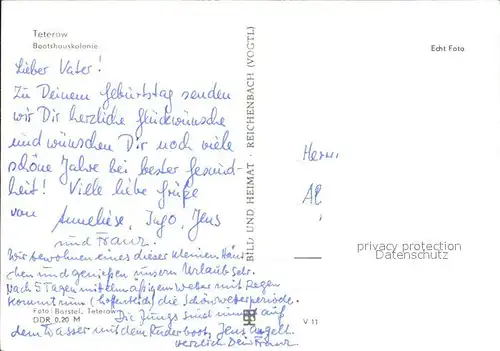 Teterow
Bootshauskolonie
Lieber Vater!
Zu Deinem Geburtstag senden
wir Dir herzliche Glückwünsche
und wünschen Dir noch viele
schöne Jahre bei bester Gesund-
heit! Viele liebe Grüße
von Anneliese, Ingo, Jens
und Franz.
Wir bewohnen eines dieser kleinen Häus-
chen und genießen unsern Urlaub sehr.
Nach 5 Tagen mit mäßigem Wetter mit Regen
kommt nun (hoffentlich) die Schönwetterperiode.
Foto: Borstel, Teterow
Die Jungs sind immer auf
DDR 0,20 M
dem Wasser mit dem Ruderboot, Jens angelt.
Herzlich Dein Franz
BILD UND HEIMAT · REICHENBACH (VOGTL)
V 11
Echt Foto
Herrn
privacy protection
Datenschutz